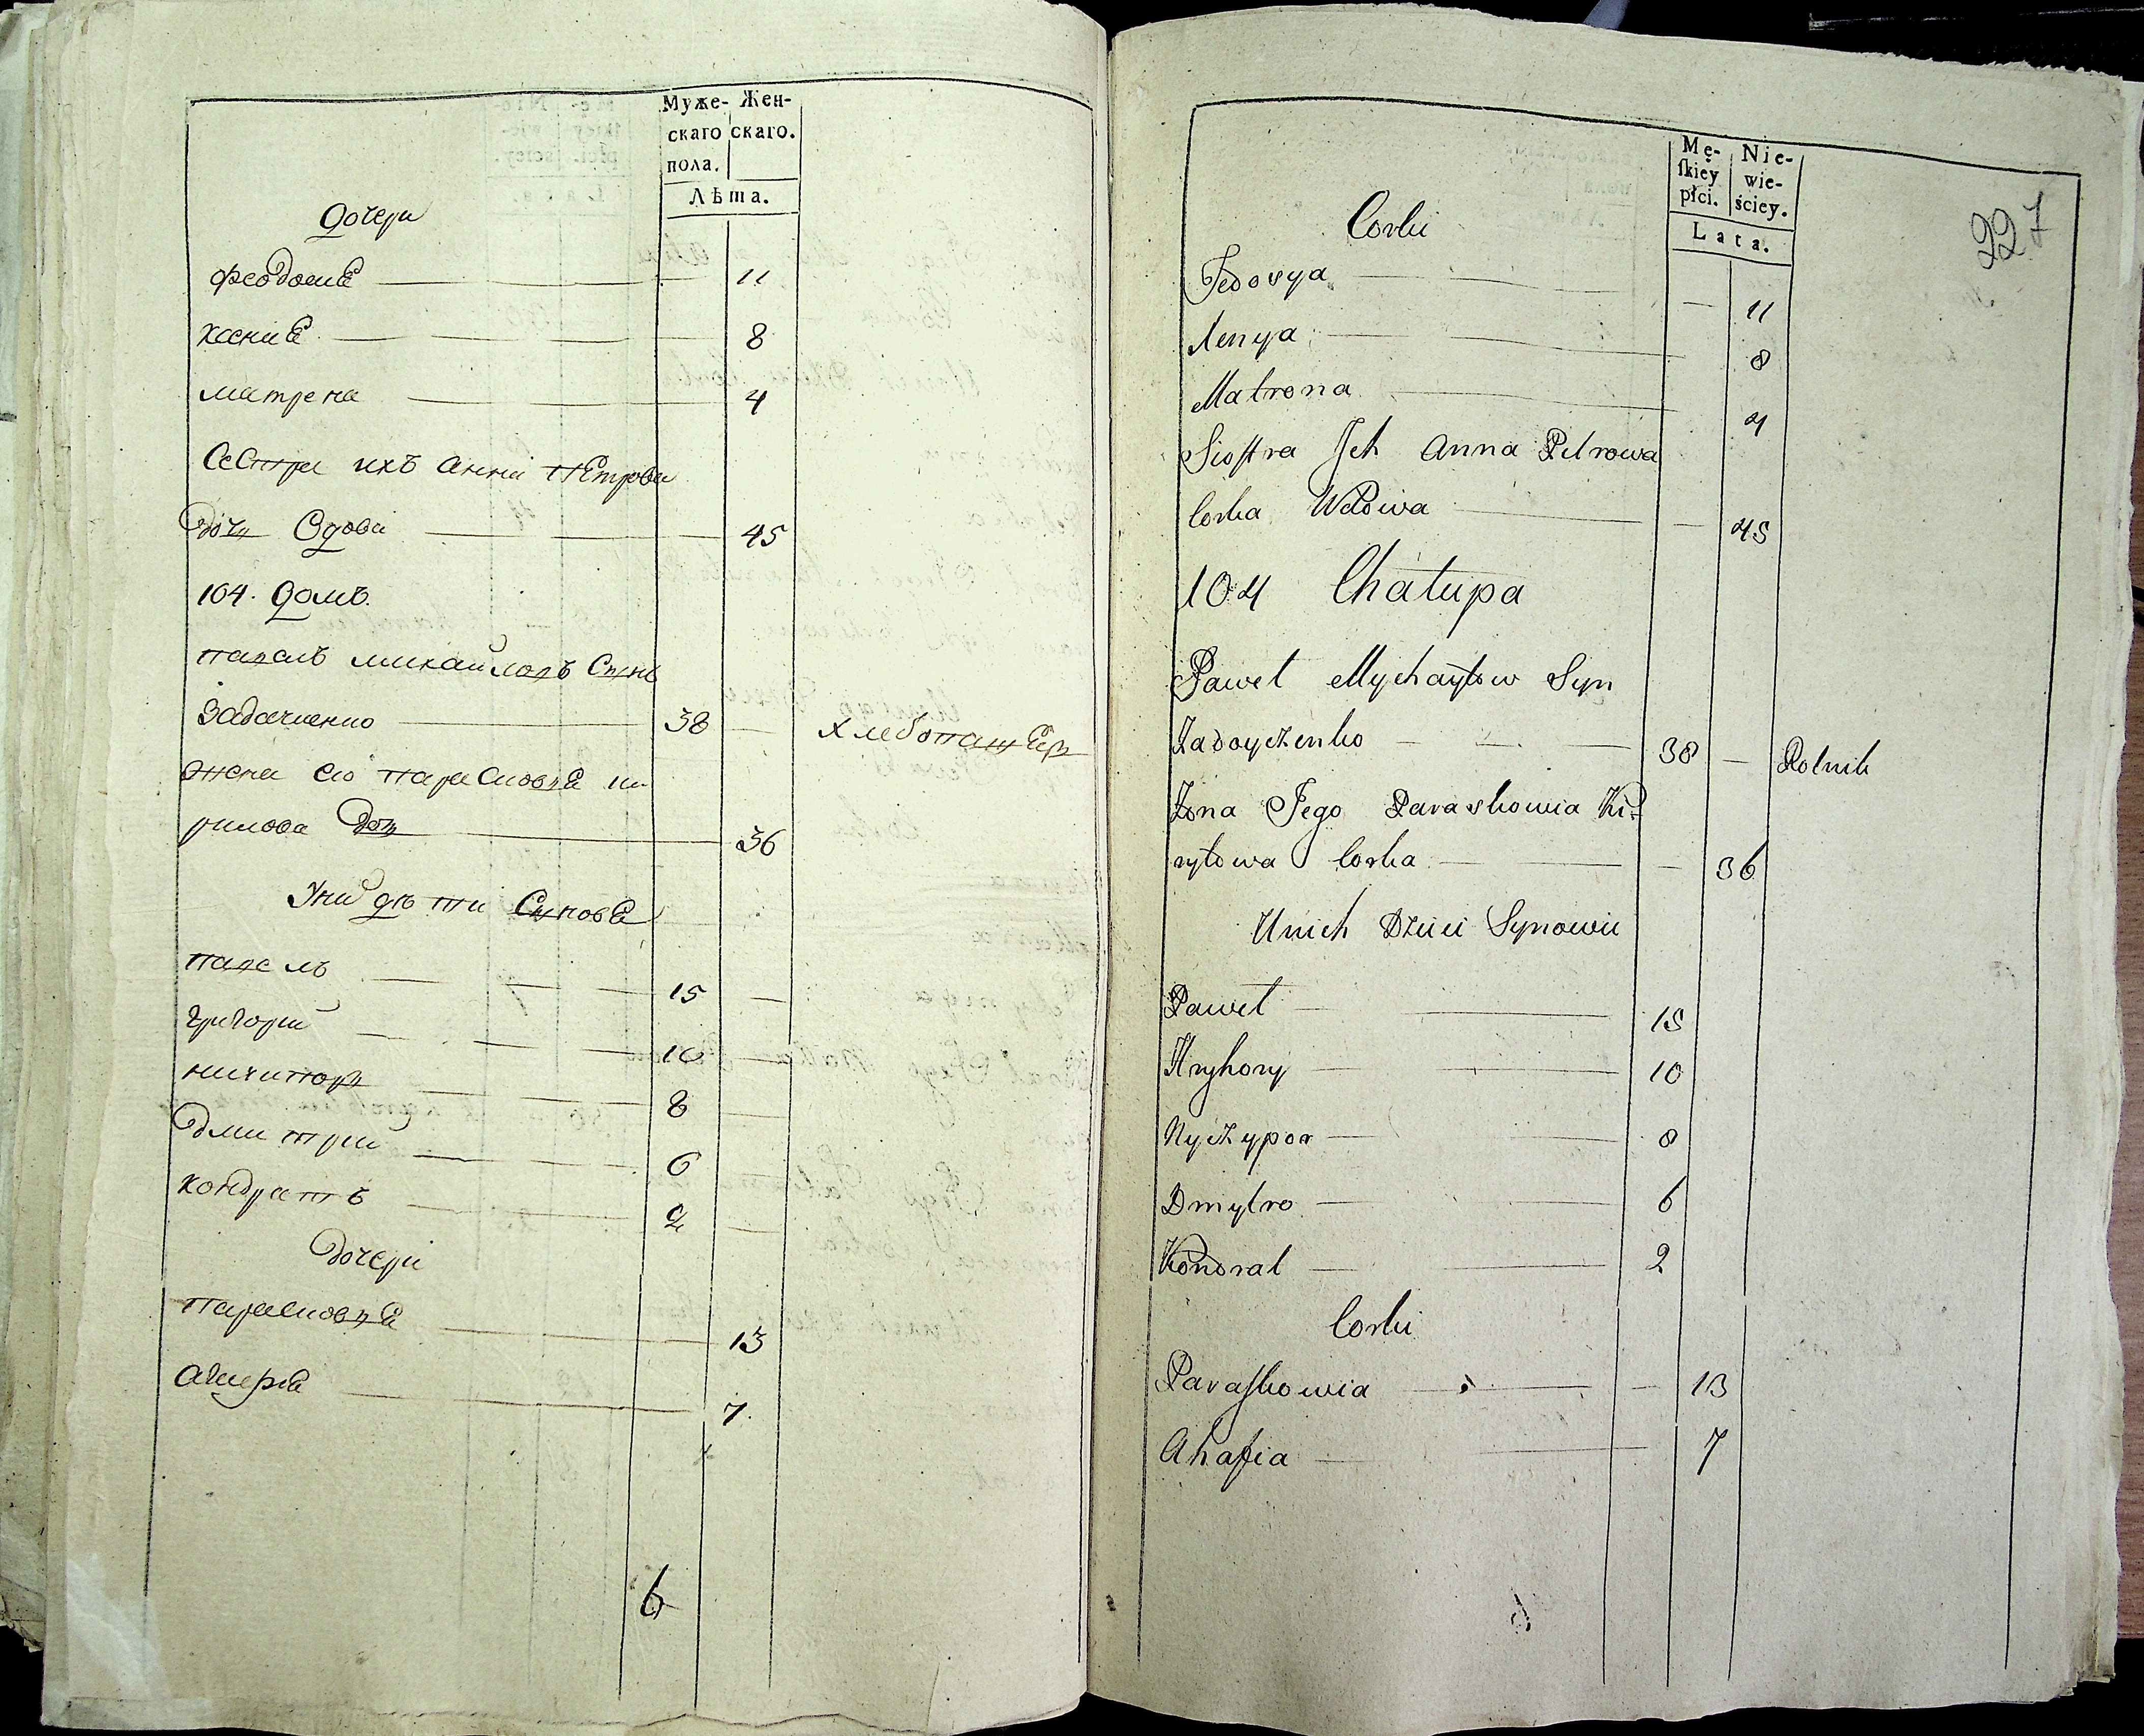 Муже- Жен-
скаго скаго.
пола.
Лѣта.
дочери
феодосиѣ 11
ксениѣ 8
матрена 4
Сестра ихъ анна петрова
дочь вдова 45
104. домъ
павелъ михайловъ Сынъ
Задайченко 38 — хлебопашецъ
жена его парасковиѣ ки
рилова дочь 36
У ни дѣти Сыновѣ
павелъ 15 —
григорий 10 —
ничипоръ 8 —
дмитрий 6 —
кондратъ 2 —
дочери
парасковиѣ 13
агафиѣ 7.
6
Mę- Nie-
ſkiey wie-
płci. ściey.
Lata.
227
Corki
Fedosya — 11
Xenya 8
Matrona 4
Siostra Jch Anna Petrowa
Corka Wdowa — 45
104 Chałupa
Paweł Mychayłow Syn
Zadayczenko 38 — Rolnik
Żona Jego Paraskowia Ki-
ryłowa Corka — 36
Unich Dzieci Synowie
Paweł 15
Hryhory 10
Nyczypor 8
Dmytro 6
Kondrat 2
Corki
Paraskowia — 13
Ahafia 7